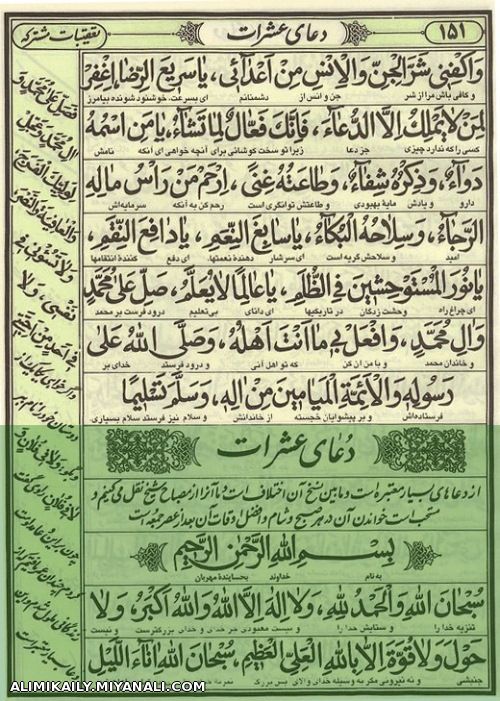 ۱۵۱
دعای عشرات
تعقیبات مشترکه
وَاكْفِنِى شَرَّ الْجِنِّ وَالْاِنْسِ مِنْ اَعْدآئِى، يا سَريعَ الرِّضا، اِغْفِرْ
و کافی باش مرا از شر جن و انس از دشمنانم ای بسرعت خوشنود شونده بیامرز
لِمَنْ لا يَمْلِكُ اِلَّا الدُّعآءَ، فَاِنَّكَ فَعّالٌ لِما تَشآءُ، يا مَنِ اسْمُهُ
کسی را که ندارد چیزی جز دعا زیرا تو سخت کوشانی برای آنچه خواهی ای آنکه نامش
دَوآءٌ، وَذِكْرُهُ شِفآءٌ، وَطاعَتُهُ غِنىً، اِرْحَمْ مَنْ رَاْسُ مالِهِ
دارو و یادش مایه بهبودی و طاعتش توانگری است رحم کن به آنکه سرمایه‌اش
الرَّجآءُ، وَسِلاحُهُ الْبُكآءُ، يا سابِغَ النِّعَمِ، يا دافِعَ النِّقَمِ،
امید و سلاحش گریه است ای سرشار دهنده نعمتها، ای دفع کنندهٔ انتقامها
يا نُورَ الْمُسْتَوْحِشينَ فِى الظُّلَمِ، يا عالِماً لا يُعَلَّمُ، صَلِّ عَلى مُحَمَّدٍ
ای چراغ راه وحشت زدگان در تاریکیها ای دانای بی‌تعلیم درود فرست بر محمد
وَالِ مُحَمَّدٍ، وَافْعَلْ بِى ما اَنْتَ اَهْلُهُ، وَصَلَّى اللهُ عَلى
و خاندان محمد و با من آن کن که تو اهل آنی و درود فرستد خدای بر
رَسُولِهِ وَالْاَئِمَّةِ الْمَيامينَ مِنْ الِهِ، وَسَلَّمَ تَسْليماً
فرستاده‌اش و بر پیشوایان خجسته از خاندانش و سلام نیز فرستد سلام بسیاری
دُعای عشرات
از دعاهای بسیار معتبره است و مابین نسخ آن اختلاف است و ما آنرا از مصباح شیخ نقل می‌کنیم و
مستحب است خواندن آن در هر صبح و شام و افضل اوقات آن بعد از عصر جمعه است
بِسْمِ اللهِ الرَّحْمنِ الرَّحيمِ
به نام خداوند بخشایندهٔ مهربان
سُبْحانَ اللهِ وَالْحَمْدُ لِلّهِ، وَلا اِلهَ اِلَّا اللهُ وَاللهُ اَكْبَرُ، وَلا
تنزیه خدا را و ستایش خدا را و نیست معبودی جز خدای و خدای بزرگتر است و نیست
حَوْلَ وَلا قُوَّةَ اِلّا بِاللهِ الْعَلِىِّ الْعَظيمِ، سُبْحانَ اللهِ اناءَ اللَّيْلِ
جنبشی و نه نیرویی مگر به وسیله خدای والای بزرگ
فَصَلِّ عَلى مُحَمَّدٍ وَ
الِ مُحَمَّدٍ وَعَجِّلْ
ALIMIKAILY.MIYANALI.COM